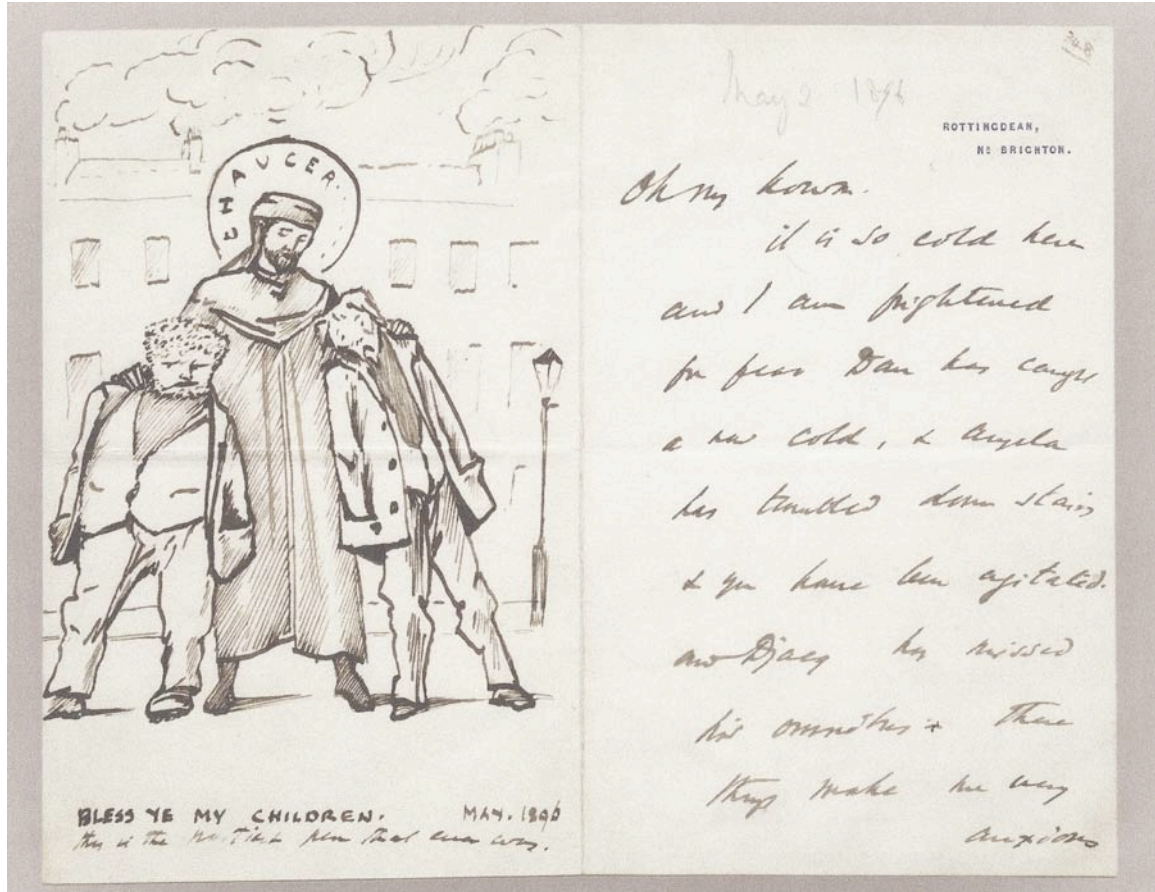 CHAUCER.
BLESS YE MY CHILDREN. MAY. 1896
this is the nastiest pen that ever was.
May 2 1896
ROTTINGDEAN,
Nr BRIGHTON.
Oh my
it is so cold here
and I am frightened
for fear Dan has caught
a new cold, & Angela
has tumbled down stairs
& you have been agitated.
and has missed
his omnibus & these
things make me very
anxious